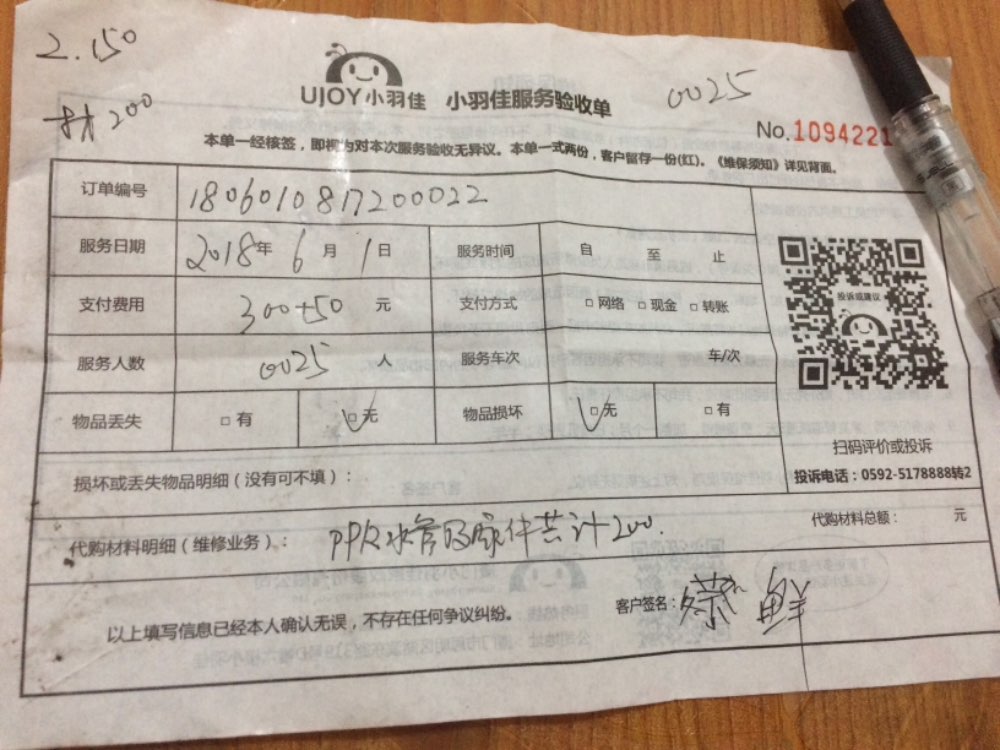 2.150
材200
UJOY小羽佳 小羽佳服务验收单
0025
No.1094221
本单一经核签，即视为对本次服务验收无异议。本单一式两份，客户留存一份(红)。《维保须知》详见背面。
订单编号 1806010817200022
服务日期 2018年 6月 1日 服务时间 自 至 止
支付费用 300+50 元 支付方式 □网络 □现金 □转账
服务人数 0025 人 服务车次 车/次
物品丢失 □有 □无 物品损坏 □无 □有
投诉或建议
扫码评价或投诉
投诉电话：0592-5178888转2
损坏或丢失物品明细（没有可不填）：
代购材料明细（维修业务）： PPR水管及家件共计200.
代购材料总额： 元
以上填写信息已经本人确认无误，不存在任何争议纠纷。
客户签名：